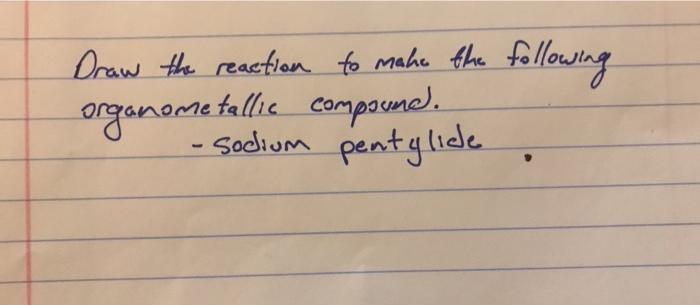 Draw the reaction to make the following
organometallic compound.
- Sodium pentylide